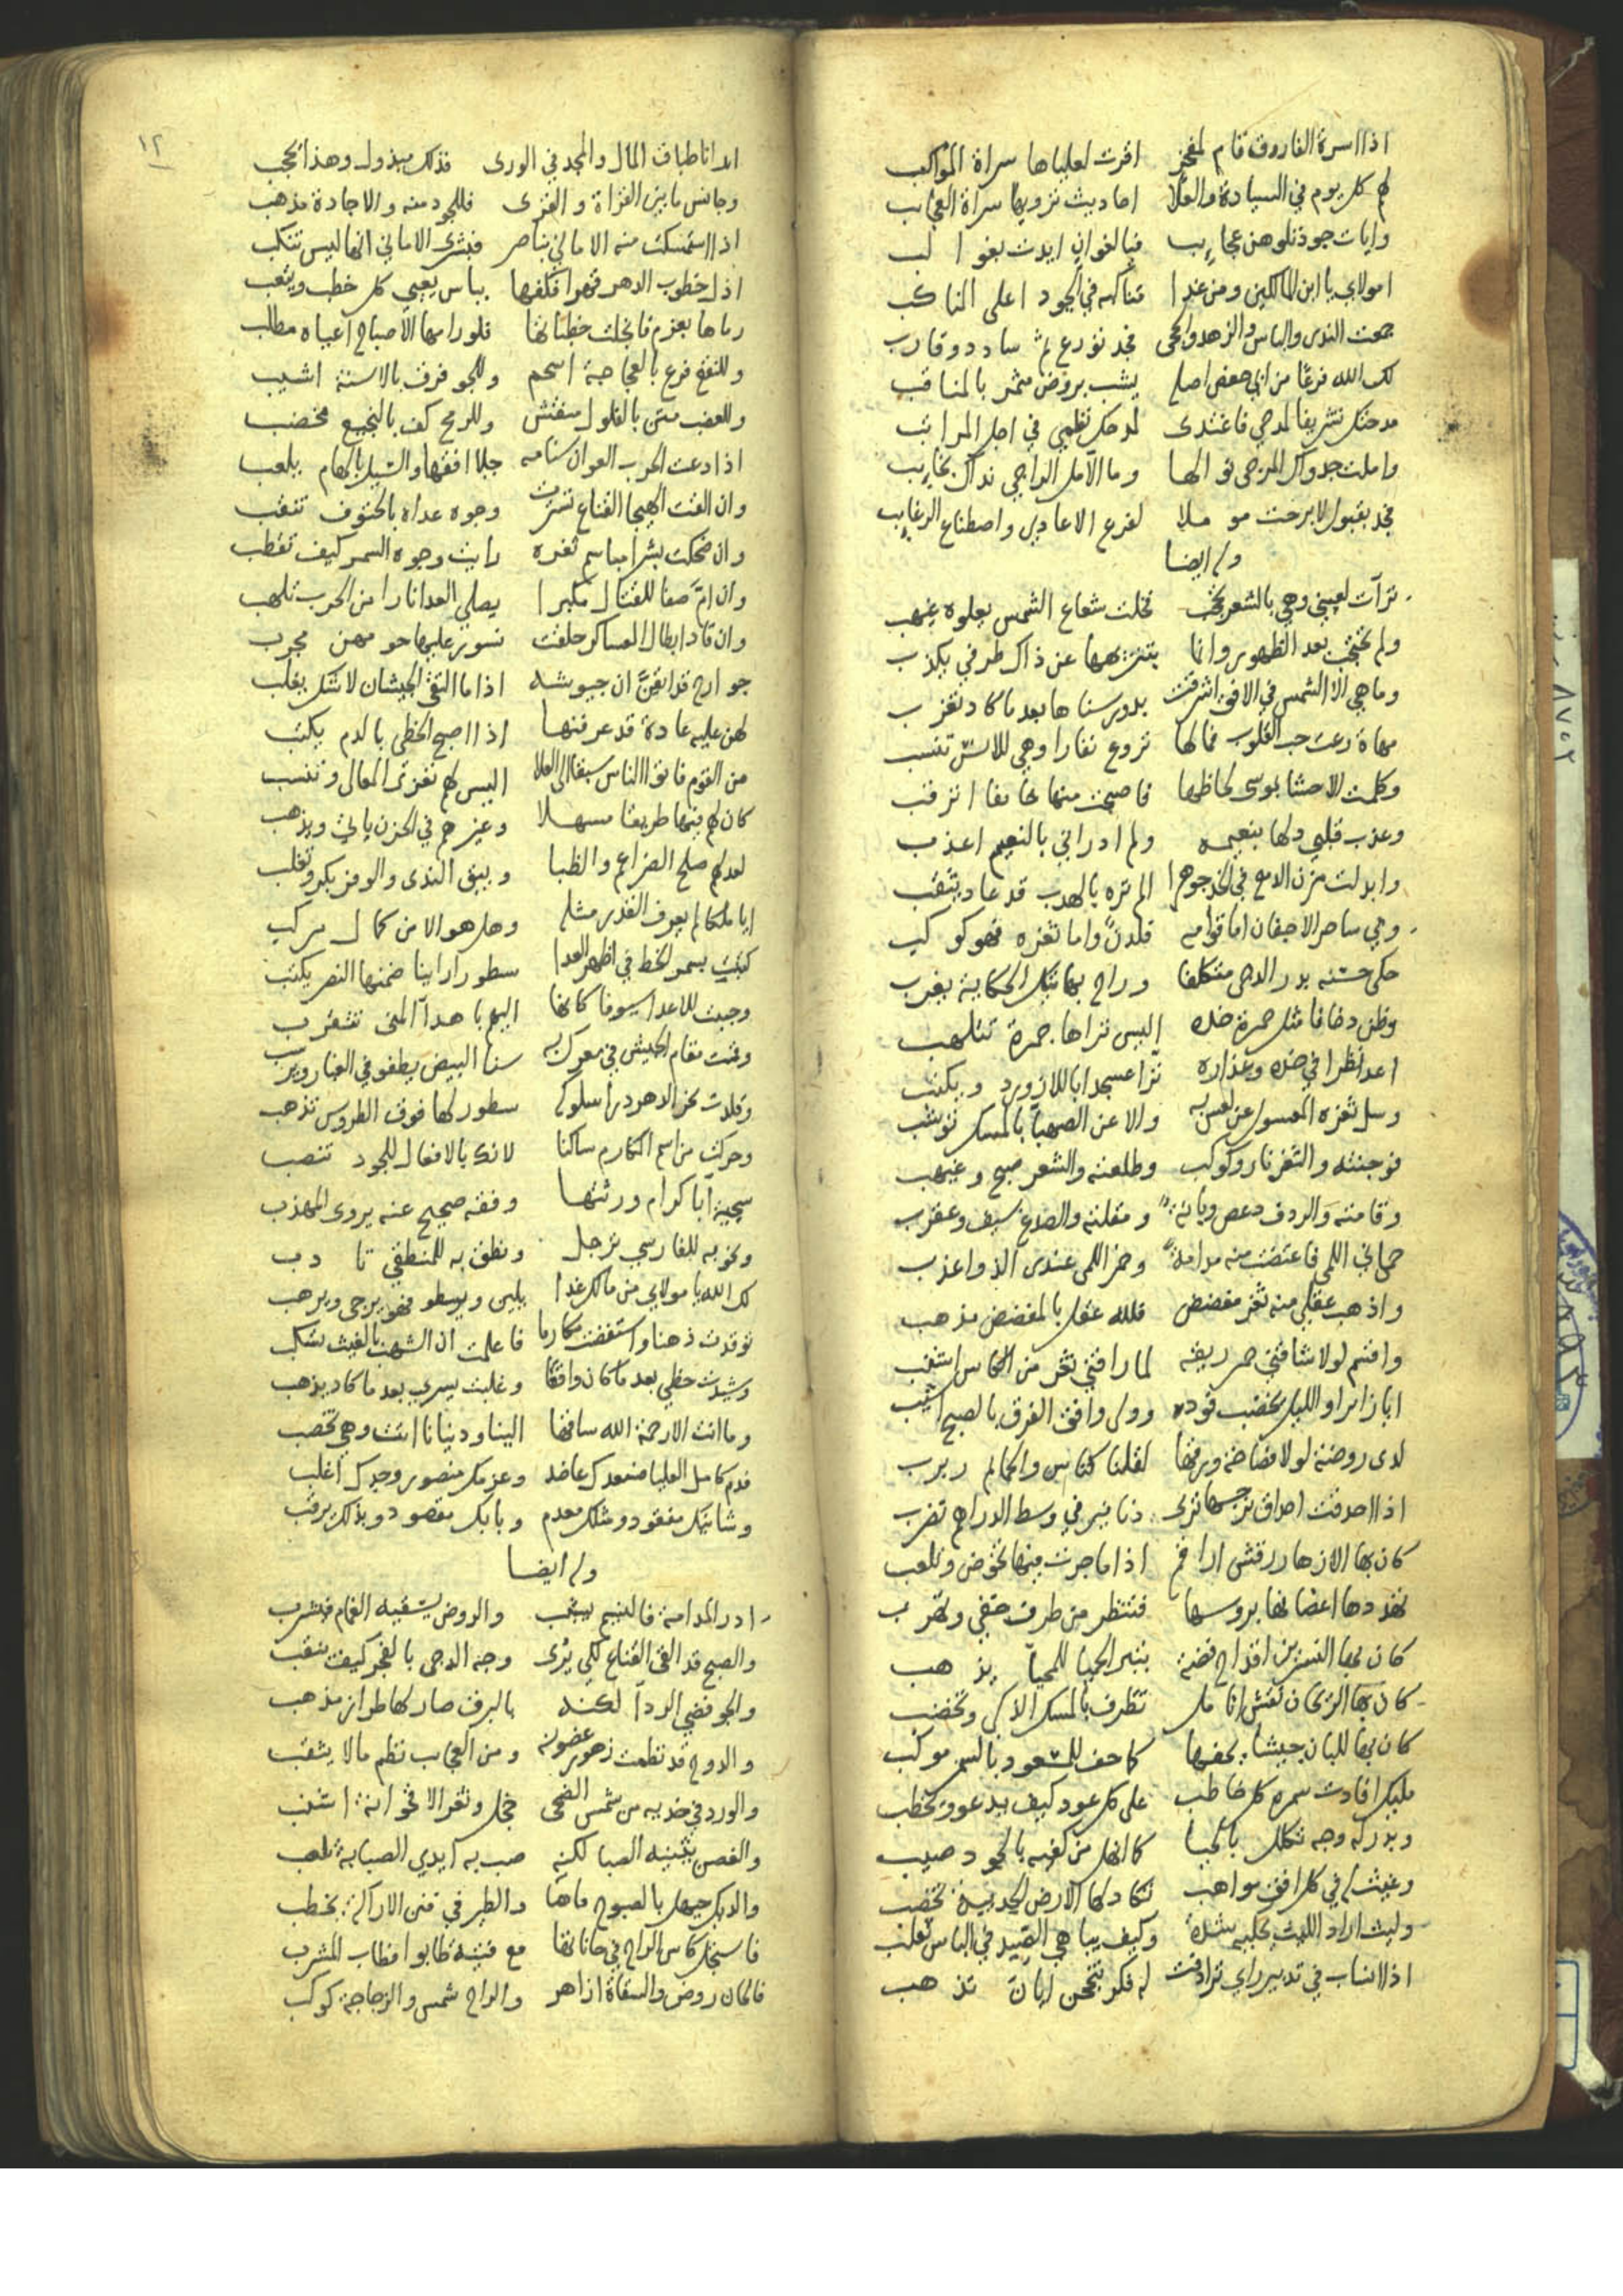 اذا اسرة الفاروق قام لمفخر اقرت لعلياها سراة المواكب
لهم كل يوم في السيادة والعلا احاديث ترويها سراة العجايب
وايات جود تلوهن عجايب فيا لغوان ايدت بغوا لب
امولاي يا ابن المالكين ومن غدا في الجود اعلى المناكب
جمعت الندى والباس والزهد والحجى فخذ
لك الله فرعا من ابي حفص اصله يشب بروض مثمر بالمناقب
مدحتك تشريفا لمدحي فاغتدى لمدحك نظمي في اجل المراتب
واملت جدواك المرجى نوالها وما الآمل الراجي نداك بخايب
فجد بقبول لا برحت مو ملا لفزع الاعادي واصطناع الرغايب
وله ايضا
ترآت لعيني وهي بالشعر تحجب فخلت شعاع الشمس يعلوه غيهب
ولم تحتجب بعد الظهور وانما عن ذاك طرفي يكذب
وما هي الا الشمس في الافق اشرقت بدور سناها بعد ما كاد تغرب
مهاة رعت حب القلوب فما لها تروع نفارا وهي للانس تنسب
وكلمت الاحشا بموسى لحاظها فاصبحت منها خايفا اترقب
وعذب قلبي دلها بنعيمه ولم ادر اني بالنعيم اعذب
وابدلت مزن الدمع في الخد جوهرا الم تره بالهدب قد عاد يثقب
وبي ساحر الاجفان اما قوامه فلدن واما ثغره فهو كو كب
حكى حسنه بدر الدجى متكلفا وراح بهاتيك الحكاية يغرب
وظن دخانا مثل حمرة خده اليس تراها جمرة تتلهب
اعد نظرا في خده وعذاره ترا عسجدا باللازورد ويكتب
وسل ثغره المعسول عن لعس به والا عن الصهبا بالمسك
فوجنته والثغر نار وكوكب وطلعته والشعر صبح وغيهب
وقامته والردف دعص وبانة ومقلته والصدغ سيف وعقرب
حماني اللمى فاعتضت منه مدامة وخمر اللمى عندي الذ واعذب
واذهب عقلي منه ثغر مفضض فلله عقل بالمفضض مذهب
واقسم لولا شاقني خمر ريقه لما راقني ثغر من الكاس اشنب
ايا زائرا والليل يخضب فوده وولى وافق الفرق بالصبح اشيب
لدى روضة لولا لقلنا كناس والحمايم ربرب
اذا احدقت احداق نرجسها ترى دنانير في وسط الدراهم تضرب
كان بها الازهار رقش اراقم اذا ما جرت فيها تخوض وتلعب
بروسها فتنظر من طرف خفي وتقرب
كان بها النسرين اقداح فضة بتبر الحيا للمحيا يذ هب
كان بها الريحان نقش انا مل تطرف بالمسك الاذكى وتخضب
كان بها للبان جيشا يحفها كما حف للسعود بالسمر موكب
مليك افادت سمره كل خاطب على كل عود كيف يدعو وتخطب
وبدر له وجه تكلل بالحيا كما انهل من كفيه بالجود صيب
وغيث له في كل افق مواهب تكاد لها الارض الجديبة تخصب
وليث اراد الليث يحكيه شدة وكيف يباهي الصيد في الباس ثعلب
اذا انساب في تدبير راي ترادفت له فكر تذ هب
١٢
طباق المال والمجد في الورى فذلك مبذول وهذا محجب
وجانس ما بين القراة والقرى فللجود منه والاجادة مذهب
اذا استمسكت منه الاماني بناصر فبشرى الاماني انها ليس تنكب
اذل خطوب الدهر قهرا فكفها بباس يعيي كل خطب ويتعب
رماها بعزم فانجلت خطباتها فلو رامها الاصباح اعياه مطلب
وللنقع فرع بالعجاجة اسحم وللجو فرق بالاسنة اشيب
وللعضب متن بالفلول منقش وللرمح كف بالنجيع مخضب
اذا دعت الحرب العوان سنامه جلا افقها والسيل بالهام يلعب
وان القت الهيجا القناع تسترت وجوه عداه بالحتوف تنقب
وان ضحكت بشرا مباسم ثغره رايت وجوه السمر كيف تقطب
وان ام صفا للقتال مكبرا يصلي العدا نارا من الحرب تلهب
وان قاد ابطال العساكر حلقت نسور عليها حومهن مجرب
جوارح قد ايقن ان جيوشه اذا ما التقى الجيشان لا شك يغلب
لهن عليه عادة قد عرفنها اذا اصبح الخطي بالدم يكتب
من القوم فاتوا الناس سبقا الى العلا اليس لهم تعزى المعالي وتنسب
كان لهم فيها طريقا مسهلا وغيرهم في الحزن ياتي ويذهب
لعدلهم صلح الضراغم والظبا وبين الندى والوفر بكر وتغلب
ايا ملكا لم يعرف القدر مثله وهل هو الا من كما ل مركب
كتبت بسمر الخط في اظهر العدا سطورا راينا ضمنها النصر يكتب
وجبت للاعدا سيوفا كانها اليهم با هدا المنى تتقرب
وقمت مقام الجيش في معرك به سنا البيض يطفو في الغبار ويرسب
وقلدت نحر الدهر در اسلوكه سطور لها فوق الطروس تذهب
وحركت من اسم المكارم ساكنا لانك بالافعال للجود تنصب
سجية آبا كرام ورثتها وفقه صحيح عنه يروى المهذب
ونحو به للفارسي ترجل ونطق به للمنطقي تا دب
لك الله يا مولاي من مالك غدا يلين ويسطو فهو يرجى ويرهب
توقدت ذهنا واستفضت مكارما فاعلمت ان الشهب بالغيث تسكب
وشيدت حظي بعد ما كان واقعا وغلبت يسري بعد ما كاد يذهب
وما انت الا رحمة الله ساقها الينا ودنيانا اتت وهي تخصب
فدم كامل العليا فسعدك عاضد وعزمك منصور وجدك اغلب
وشانيك مفقود ومثلك معدم وبابك مقصود وبذلك يرقب
وله ايضا
ادر المدامة فالنسيم يشبب والروض يسقيه الغمام فيشرب
والصبح قد القى القناع لكي يرى وجه الدجى بالفجر كيف ينقب
والجو فضي الردآ لكنه بالبرق صار لها طراز مذهب
والدوح قد نظمت زهور غصونه ومن العجايب نظم ما لا يثقب
والورد في خديه من شمس الضحى خجل وثغر الاقحوانة اشنب
والغصن يثنيه الصبا لكنه صب به ايدي الصبابة تلعب
والديك حيهل بالصبوح والطير في فنن الاراكة يخطب
فاستجل كاس الراح في حاناتها مع فتية طابوا فطاب المشرب
فالحان روض والسقاة ازاهر والراح شمس والزجاجة كوكب